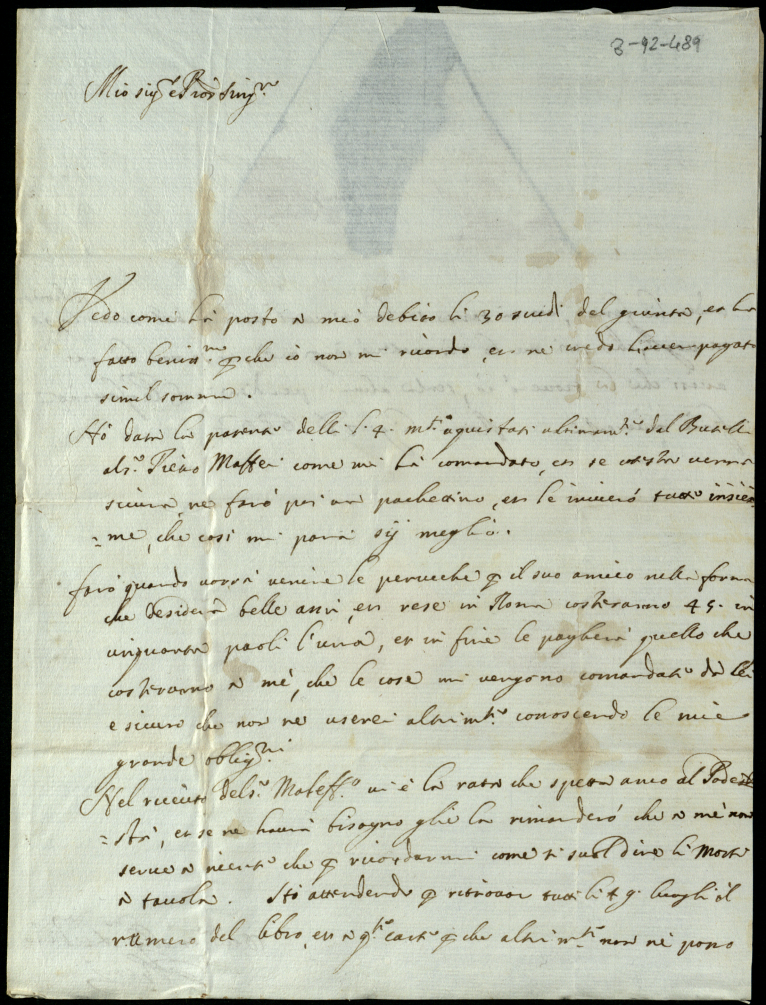 8-92-489
Mio sig.re e Pron Sing.re
Vedo come hà posto a mio debito li 30 scudi del giunta, et ha
fatto beniss.mo p che io non mi ricordo, et ne credo haver pagato
simil somma.
Hò data la patente delli l. 4. m.ti aquistati ultimam.te dal Buselli
al s.r Pietro Maffei come mi hà comandato, et se costì verrà
sicura, ne farò poi un pachettino, et le invierò tutto insie=
=me, che così mi parrà sij meglio.
farò quando vorrà venire le peruche p il suo amico nella forma
che desidera belle assi, et rese in Roma costeranno 45. in
cinquanta paoli l'una, et in fine le pagherà quello che
costeranno a mé, che le cose mi vengono comandate da lei
e sicuro che non ne userei altrim.te conoscendo le mie
grande oblig.ni
Nel ricevuto del s.r Mateff.o vi è la rata che spetta anco al Podes=
=stà, et se ne havrà bisogno gliè la rimanderó che a mé non
serve a niente che p ricordarmi come si suol dire li Morti
a tavola. Stó attendendo p ritrovar tutti li 49. luoghi il
numero del libro, et a q.te carte p che altrim.ti non né pono